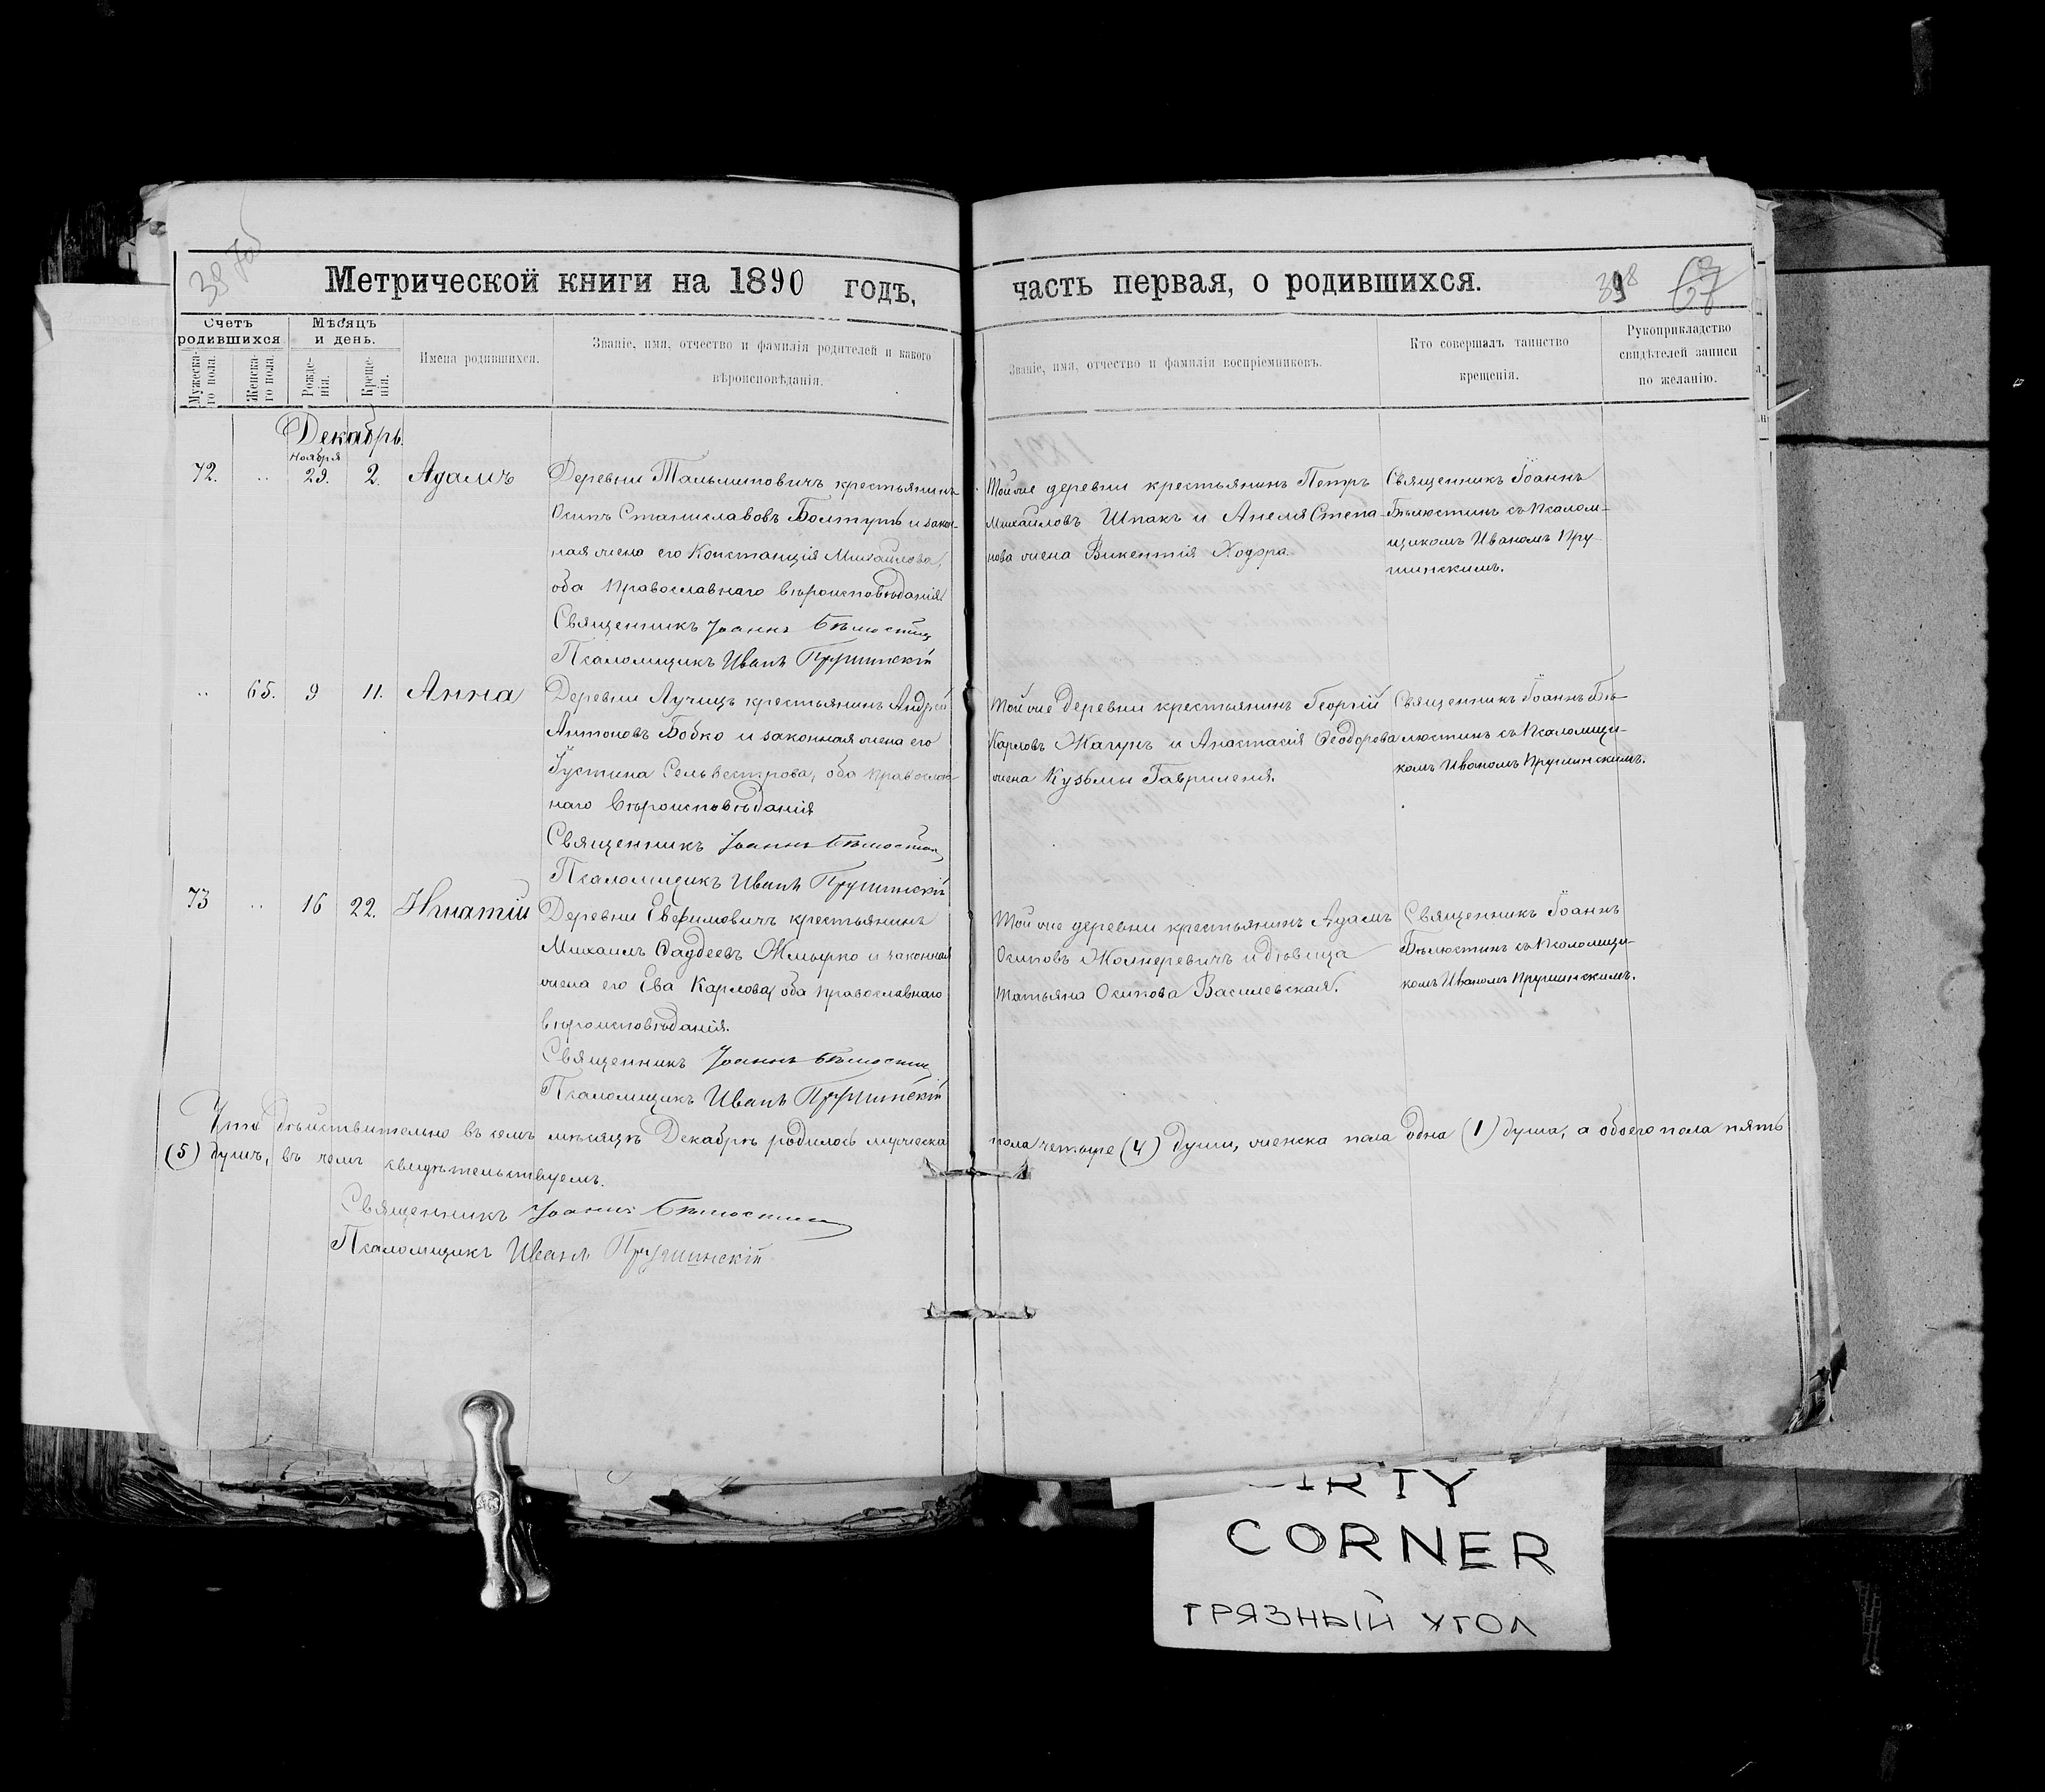 Метрической книги на 1890 годъ,
часть первая, о родившихся.
398
Счетъ родившихся
Мѣсяцъ и день.
Мужеска-го пола.
Женска-го пола.
Рожде-нія.
Креще-нія.
Имена родившихся.
Званіе, имя, отчество и фамилія родителей и какого
вѣроисповѣданія.
Званіе, имя, отчество и фамилія воспріемниковъ.
Кто совершалъ таинство
крещенія.
Рукоприкладство
свидѣтелей записи
по желанію.
Декабрь.
Ноября
72. .. 29. 2. Адамъ
Деревни Тальминовичъ крестьянинъ
Осипъ Станиславовъ Болтуть и закон-
ная жена его Констанція Михайлова,
оба православнаго вѣроисповѣданія
Священникъ Іоаннъ Бѣлюстин
Псаломщикъ Иванъ Прушинскій
Той же деревни крестьянинъ Петръ
Михайловъ Шпакъ и Анеля Степа-
нова жена Викентія Ходора
Священникъ Іоаннъ
Бѣлюстинъ съ псалом-
щикомъ Иваномъ Пру-
шинскимъ.
.. 65. 9 11. Анна
Деревни Лучицъ крестьянинъ Андрей
Антоновъ Бобко и законная жена его
Густина Сельвестрова, оба православ-
наго вѣроисповѣданія
Священникъ Іоаннъ Бѣлюстин
Псаломщикъ Иванъ Прушинскій
Той же деревни крестьянинъ Георгій
Карловъ Жагунъ и Анастасія Ѳеодорова
жена Кузьмы Гавриленя.
Священникъ Іоаннъ Бѣ-
люстинъ съ псаломщи-
комъ Иваномъ Прушинскимъ.
73 .. 16 22. Игнатій
Деревни Евфимовичъ крестьянинъ
Михаилъ Ѳаддеевъ Жмырко и законная
жена его Ева Карлова, оба православнаго
вѣроисповѣданія.
Священникъ Іоаннъ Бѣлюстин
Псаломщикъ Иванъ Прушинскій
Той же деревни крестьянинъ Адамъ
Осиповъ Жолнеревичъ и дѣвица
Татьяна Осипова Василевская.
Священникъ Іоаннъ
Бѣлюстинъ съ псаломщи-
комъ Иваномъ Прушинскимъ.
Что дѣйствительно въ семъ мѣсяцѣ Декабрѣ родилось мужеска пола четыре (4) души, женска пола одна (1) душа, а обоего пола пять
(5) душъ, въ чемъ свидѣтельствуемъ.
Священникъ Іоаннъ Бѣлюстин
Псаломщикъ Иванъ Прушинскій
CORNER
ГРЯЗНЫЙ УГОЛ